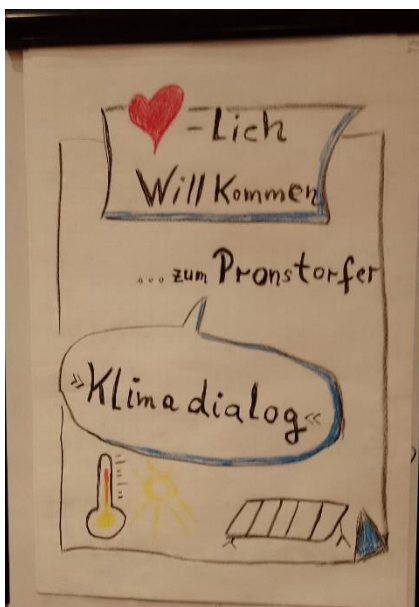 -Lich
Willkommen
... zum Pronstorfer
»Klimadialog«